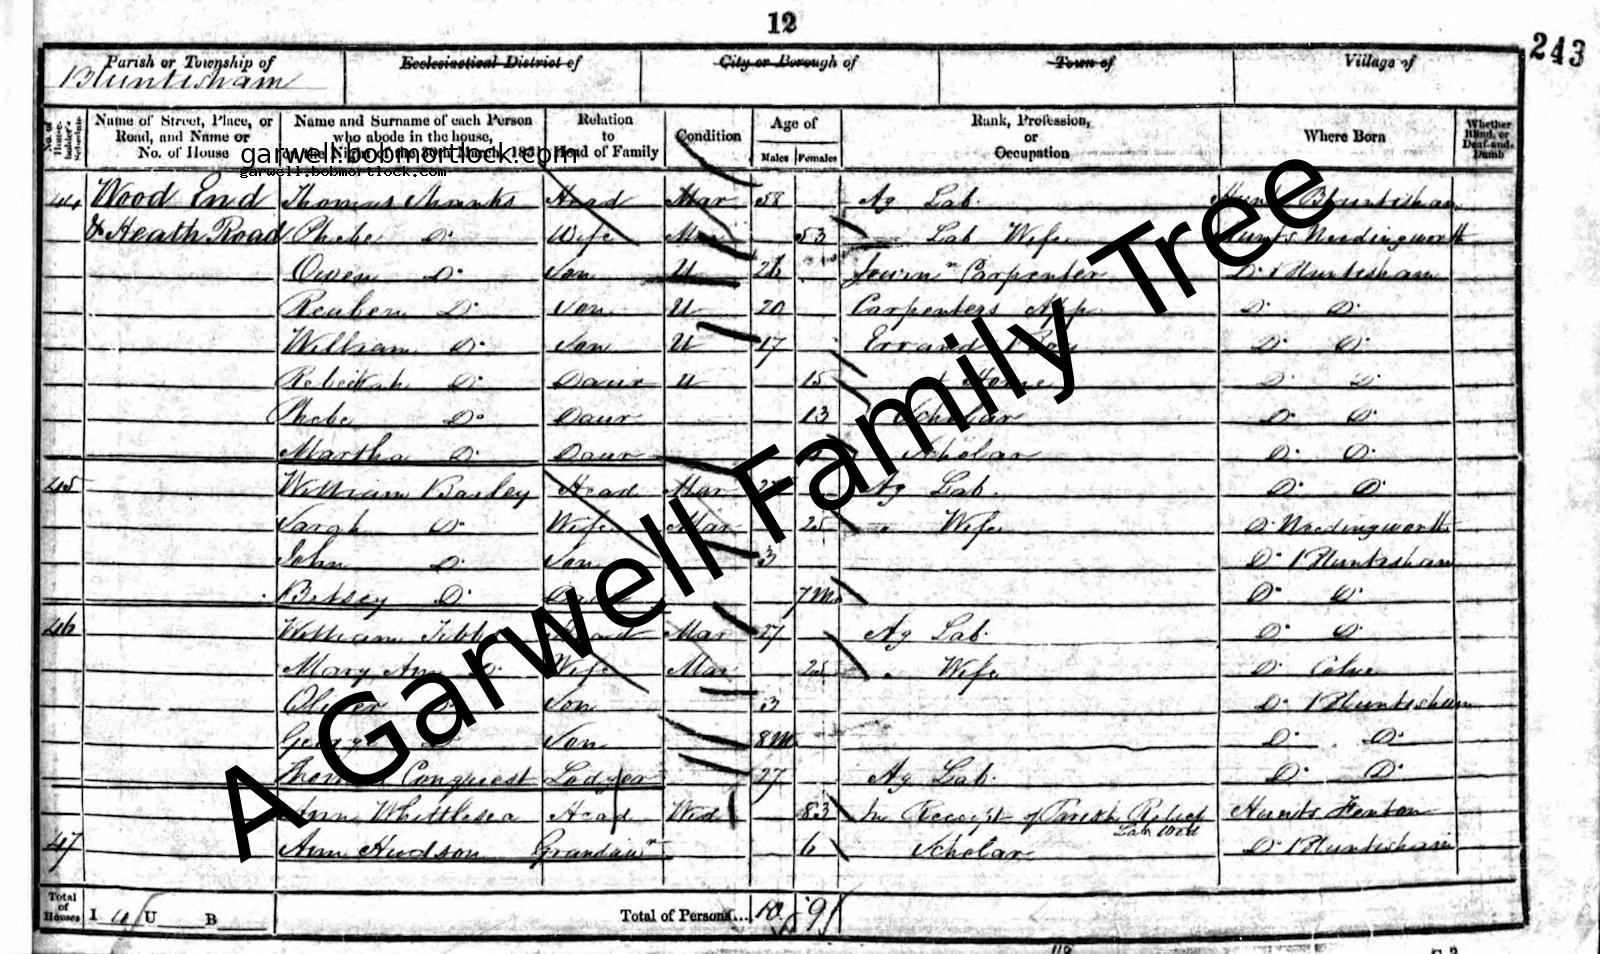 12
243
Parish or Township of Ecclesiastical District of City or Borough of Town of Village of
Bluntisham
No. of Householder's Schedule Name of Street, Place, or Road, and Name or No. of House Name and Surname of each Person who abode in the house, on the Night of the 30th March, 1851 Relation to Head of Family Condition Age of Males Females Rank, Profession, or Occupation Where Born Whether Blind, or Deaf-and-Dumb
garwell.bobmortlock.com
garwell.bobmortlock.com
44 Wood End Thomas Head Mar 58 Ag Lab Hunts Bluntisham
& Heath Road Phebe Do Wife Mar 53 Lab Wife Hunts Needingworth
Owen Do Son U Journn Carpenter Do Bluntisham
Reuben Do Son U 20 Carpenters App Do Do
William Do Son U 17 Errand Boy Do Do
Rebekah Do Daur U 15 At Home Do Do
Phebe Do Daur 13 Scholar Do Do
Martha Do Daur Scholar Do Do
45 William Basley Head Mar Ag Lab Do Do
Sarah Do Wife Mar 25 Do Wife Do Needingworth
John Do Son 3 Do Bluntisham
Betsey Do Daur 7 Mo Do Do
46 William Tibbs Head Mar 27 Ag Lab Do Do
Mary Ann Do Wife Mar 25 Wife Do Colne
Oliver Do Son 3 Do Bluntisham
George Do Son 8 Mo Do Do
Thomas Conquest Lodger 27 Ag Lab Do Do
Ann Whittlesea Head Wid 83 In Receipt of Parish Relief Hunts Fenton
Lab Wid
47 Ann Hudson Grandaur 6 Scholar Do Bluntisham
Total of Houses I 4 U B Total of Persons.... 10 9
A Garwell Family Tree